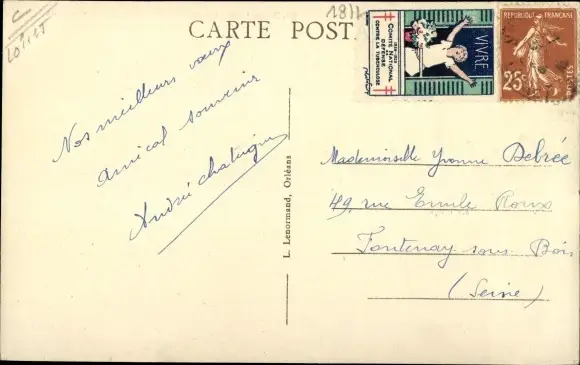 C
LOIRET
CARTE POST
18/1
COMITÉ NATIONAL
DE
DÉFENSE
CONTRE LA TUBERCULOSE
VIVRE
RÉPUBLIQUE FRANÇAISE
25c
POSTES
Nos meilleurs vœux
amical souvenir
André
L. Lenormand, Orléans
Mademoiselle Yvonne Debrée
49, rue Emile Roux
Fontenay sous Bois
(Seine)